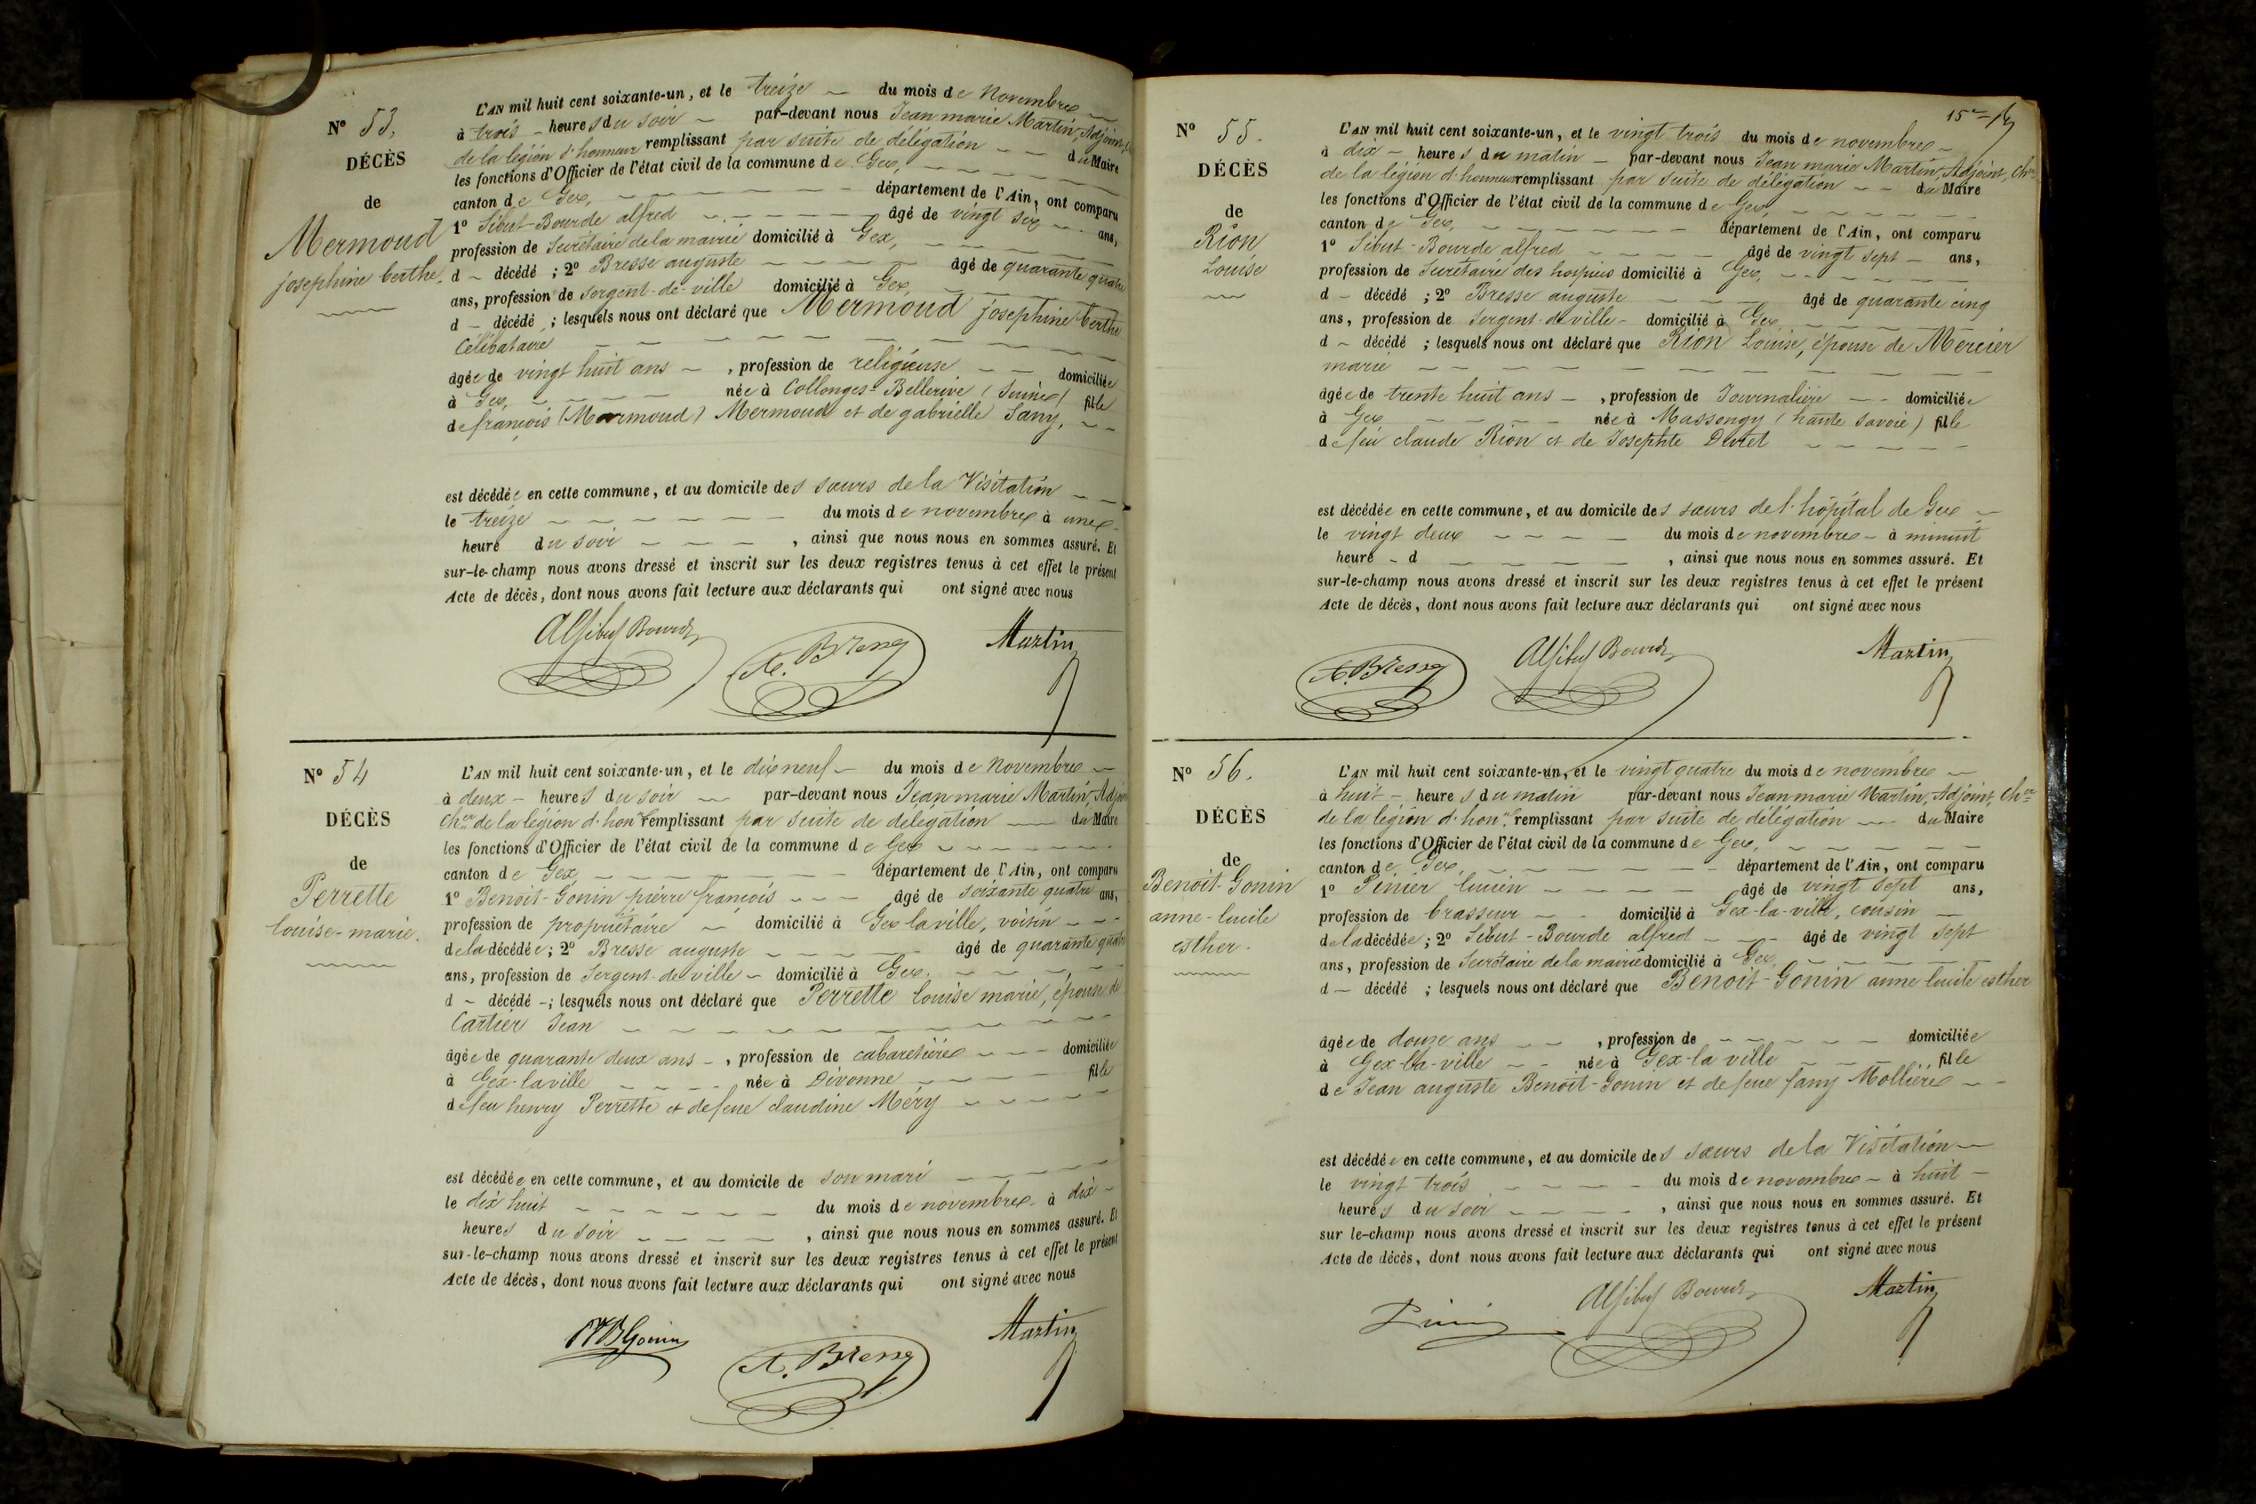 N° 53.
DÉCÈS
de
Mermoud
josephine berthe.
L'AN mil huit cent soixante-un, et le treize du mois de Novembre
à trois heures du soir par-devant nous Jean marie Martin, Adjoint,
de la légion d'honneur remplissant par suite de délégation du Maire
les fonctions d'Officier de l'état civil de la commune de Gex,
canton de Gex, département de l'Ain, ont comparu
1° Sibut-Bourde alfred âgé de vingt six ans,
profession de Secrétaire de la mairie domicilié à Gex,
d décédé ; 2° Bresse auguste âgé de quarante quatre
ans, profession de Sergent-de-ville domicilié à Gex,
d décédé ; lesquels nous ont déclaré que Mermoud josephine berthe
Célibataire
âgée de vingt huit ans , profession de religieuse domiciliée
à Gex, née à Collonges-Bellerive (Suisse) fille
de françois (Marmoud) Mermoud et de gabrielle Sany,
est décédée en cette commune, et au domicile des sœurs de la Visitation
le treize du mois de novembre à une
heure du soir , ainsi que nous nous en sommes assuré. Et
sur-le-champ nous avons dressé et inscrit sur les deux registres tenus à cet effet le présent
Acte de décès, dont nous avons fait lecture aux déclarants qui ont signé avec nous
Alf Sibut Bourde
A. Bresse
Martin
N° 54
DÉCÈS
de
Perrette
louise-marie.
L'AN mil huit cent soixante-un, et le dix neuf du mois de Novembre
à deux heures du soir par-devant nous Jean marie Martin, Adjoint
Cher de la légion d'honr remplissant par suite de délégation du Maire
les fonctions d'Officier de l'état civil de la commune de Gex
canton de Gex département de l'Ain, ont comparu
1° Benoit-Gonin pierre françois âgé de soixante quatre ans,
profession de propriétaire domicilié à Gex la ville, voisin
de la décédée ; 2° Bresse auguste âgé de quarante quatre
ans, profession de Sergent-de-ville domicilié à Gex.
d décédé ; lesquels nous ont déclaré que Perrette louise marie, épouse de
Cartier Jean
âgée de quarante deux ans , profession de cabaretière domiciliée
à Gex-la ville née à Divonne fille
de feu henry Perrette et de feue claudine Méry
est décédée en cette commune, et au domicile de son mari
le dix huit du mois de novembre à dix
heures du soir , ainsi que nous nous en sommes assuré. Et
sur-le-champ nous avons dressé et inscrit sur les deux registres tenus à cet effet le présent
Acte de décès, dont nous avons fait lecture aux déclarants qui ont signé avec nous
BGonin
A. Bresse
Martin
15e
N° 55.
DÉCÈS
de
Rion
Louise
L'AN mil huit cent soixante-un, et le vingt trois du mois de novembre
à dix heures du matin par-devant nous Jean marie Martin, Adjoint, Cher
de la légion d'honneur remplissant par suite de délégation du Maire
les fonctions d'Officier de l'état civil de la commune de Gex,
canton de Gex, département de l'Ain, ont comparu
1° Sibut-Bourde alfred âgé de vingt sept ans,
profession de Secrétaire des hospices domicilié à Gex,
d décédé ; 2° Bresse auguste âgé de quarante cinq
ans, profession de Sergent-de-ville domicilié à Gex
d décédé ; lesquels nous ont déclaré que Rion Louise, épouse de Mercier
marie
âgée de trente huit ans , profession de Journalière domiciliée
à Gex née à Massongy (haute Savoie) fille
de feu claude Rion et de Josephte Duret
est décédée en cette commune, et au domicile des sœurs de l'hôpital de Gex
le vingt deux du mois de novembre à minuit
heure d , ainsi que nous nous en sommes assuré. Et
sur-le-champ nous avons dressé et inscrit sur les deux registres tenus à cet effet le présent
Acte de décès, dont nous avons fait lecture aux déclarants qui ont signé avec nous
A. Bresse
Alf Sibut Bourde
Martin
N° 56.
DÉCÈS
de
Benoit-Gonin
anne-lucile
esther.
L'AN mil huit cent soixante-un, et le vingt quatre du mois de novembre
à huit heures du matin par-devant nous Jean marie Martin, Adjoint, Cher
de la légion d'honr. remplissant par suite de délégation du Maire
les fonctions d'Officier de l'état civil de la commune de Gex,
canton de Gex, département de l'Ain, ont comparu
1° Pinier lucien âgé de vingt sept ans,
profession de brasseur domicilié à Gex-la-ville, cousin
de la décédée ; 2° Sibut-Bourde alfred âgé de vingt sept
ans, profession de Secrétaire de la mairie domicilié à Gex,
d décédé ; lesquels nous ont déclaré que Benoit-Gonin anne lucile esther
âgée de douze ans , profession de domiciliée
à Gex-la-ville née à Gex-la ville fille
de Jean auguste Benoit-Gonin et de feue fany Mollière
est décédée en cette commune, et au domicile des sœurs de la Visitation
le vingt trois du mois de novembre à huit
heures du soir , ainsi que nous nous en sommes assuré. Et
sur le-champ nous avons dressé et inscrit sur les deux registres tenus à cet effet le présent
Acte de décès, dont nous avons fait lecture aux déclarants qui ont signé avec nous
Pinier
Alf Sibut Bourde
Martin